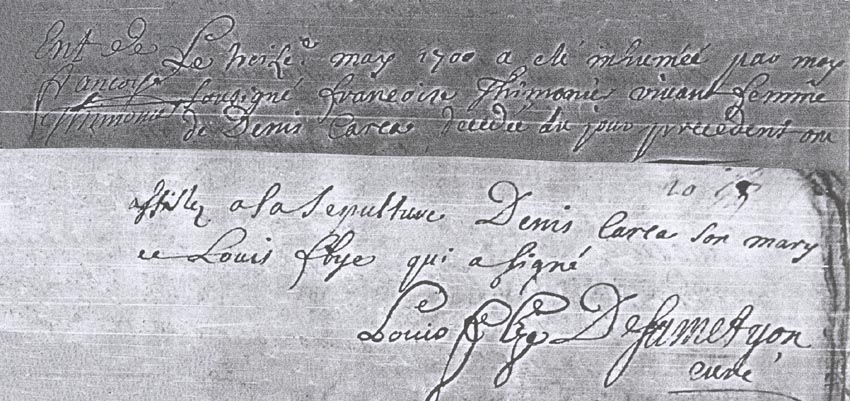 Ent de
francoise
Thimonie
Le treize.e may 1700 a eté inhumeé par moy
sousigné francoise Thimonie vivant femme
de Denis Carea decedée du jour precedent ont
assistez a la sepulture Denis Carea son mary
et Louis qui a signé
Louis DeJametyon
curé